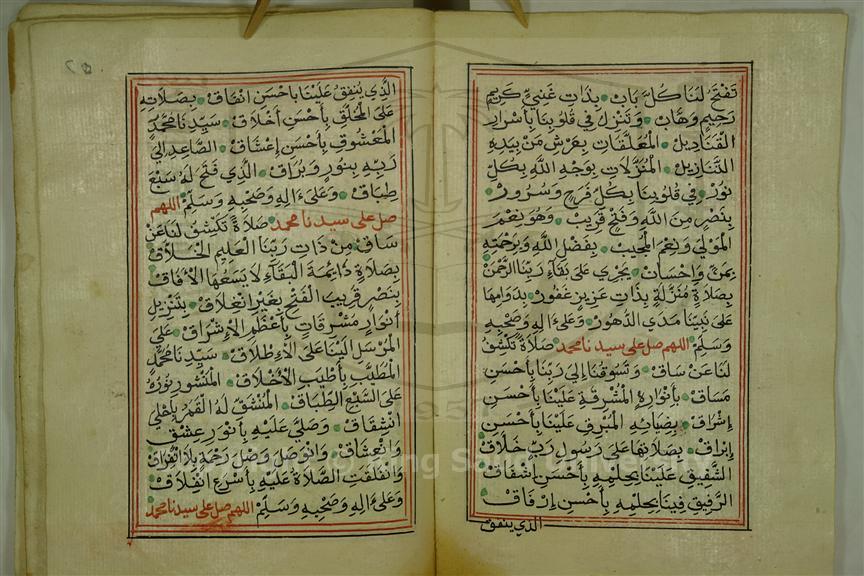 تَفْتَحُ لَنَا كُلَّ بَابْ بِذَاتِ غَنِيٍّ كَرِيمٍ
رَحِيمٍ وَهَّابْ وَتَنْزِلُ فِي قُلُوبِنَا بِأَسْرَارِ
الْقَنَادِيلْ الْمُعَلَّقَاتِ بِعَرْشِ مَنْ بِيَدِهِ
التَّنَازِيلْ الْمُنَزَّلَاتِ بِوَجْهِ اللَّهِ بِكُلِّ
نُورْ فِي قُلُوبِنَا بِكُلِّ فَرَحٍ وَسُرُورْ
بِنَصْرٍ مِنَ اللَّهِ وَفَتْحٍ قَرِيبْ وَهُوَ نِعْمَ
الْمَوْلَى وَنِعْمَ الْمُجِيبْ بِفَضْلِ اللَّهِ وَبِرَحْمَتِهِ
وَإِحْسَانْ يَجْرِي عَلَى بَقَاءِ رَبِّنَا الرَّحْمَنْ
بِصَلَاةٍ مُنَزَّلَةٍ بِذَاتِ عَزِيزٍ غَفُورْ بِدَوَامِهَا
عَلَى نَبِيِّنَا مَدَى الدُّهُورْ وَعَلَى آلِهِ وَصَحْبِهِ
وَسَلِّمْ اللهم صل على سيدنا محمد صَلَاةً تَكْشِفُ
لَنَا عَنْ سَاقْ وَتَسُوقُنَا إِلَى رَبِّنَا بِأَحْسَنِ
مَسَاقْ بِأَنْوَارِهِ الْمُشْرِقَةِ عَلَيْنَا بِأَحْسَنِ
إِشْرَاقْ بِضِيَائِهِ الْمُبْرِقِ عَلَيْنَا بِأَحْسَنِ
إِبْرَاقْ بِصَلَاتِهَا عَلَى رَسُولِ رَبٍّ خَلَّاقْ
الشَّفِيقِ عَلَيْنَا بِحِلْمِهِ بِأَحْسَنِ إِشْفَاقْ
الرَّفِيقِ فِينَا بِحِلْمِهِ بِأَحْسَنِ إِرْفَاقْ
الذي ينفق
الَّذِي يُنْفِقُ عَلَيْنَا بِأَحْسَنِ إِنْفَاقْ بِصَلَاتِهِ
عَلَى الْمُخَلَّقِ بِأَحْسَنِ أَخْلَاقْ سَيِّدِنَا مُحَمَّدٍ
الْمَعْشُوقِ بِأَحْسَنِ إِعْشَاقْ الصَّاعِدِ إِلَى
رَبِّهِ بِنُورٍ وَبُرَاقْ الَّذِي فَتَحَ لَهُ سَبْعَ
طِبَاقْ وَعَلَى آلِهِ وَصَحْبِهِ وَسَلِّمْ اللهم
صل على سيدنا محمد صَلَاةً تَكْشِفُ لَنَا عَنْ
سَاقْ مِنْ ذَاتِ رَبِّنَا الْعَلِيمِ الْخَلَّاقْ
بِصَلَاةٍ دَائِمَةِ الْبَقَاءِ لَا يَسَعُهَا الْآفَاقْ
بِنَصْرٍ قَرِيبِ الْفَتْحِ بِغَيْرِ انْغِلَاقْ بِتَنْزِيلِ
أَنْوَارٍ مُشْرِقَاتٍ بِأَعْظَمِ الْإِشْرَاقْ عَلَى
الْمُرْسَلِ إِلَيْنَا عَلَى الْإِطْلَاقْ سَيِّدِنَا مُحَمَّدٍ
الْمُطَيَّبِ بِأَطْيَبِ الْأَخْلَاقْ الْمَنْشُورِ نُورُهُ
عَلَى السَّبْعِ الطِّبَاقْ الْمُنْشَقِّ لَهُ الْقَمَرُ بِأَحْلَى
انْشِقَاقْ وَصَلَّى عَلَيْهِ بِأَنْوَرِ عِشْقٍ
وَانْعِشَاقْ وَاتَّصَلَ وَصْلَ رَحْمَةٍ بِلَا افْتِرَاقْ
وَانْفَلَقَتِ الصَّلَاةُ عَلَيْهِ بِأَسْرَعِ انْفِلَاقْ
وَعَلَى آلِهِ وَصَحْبِهِ وَسَلِّمْ اللهم صل على سيدنا محمد